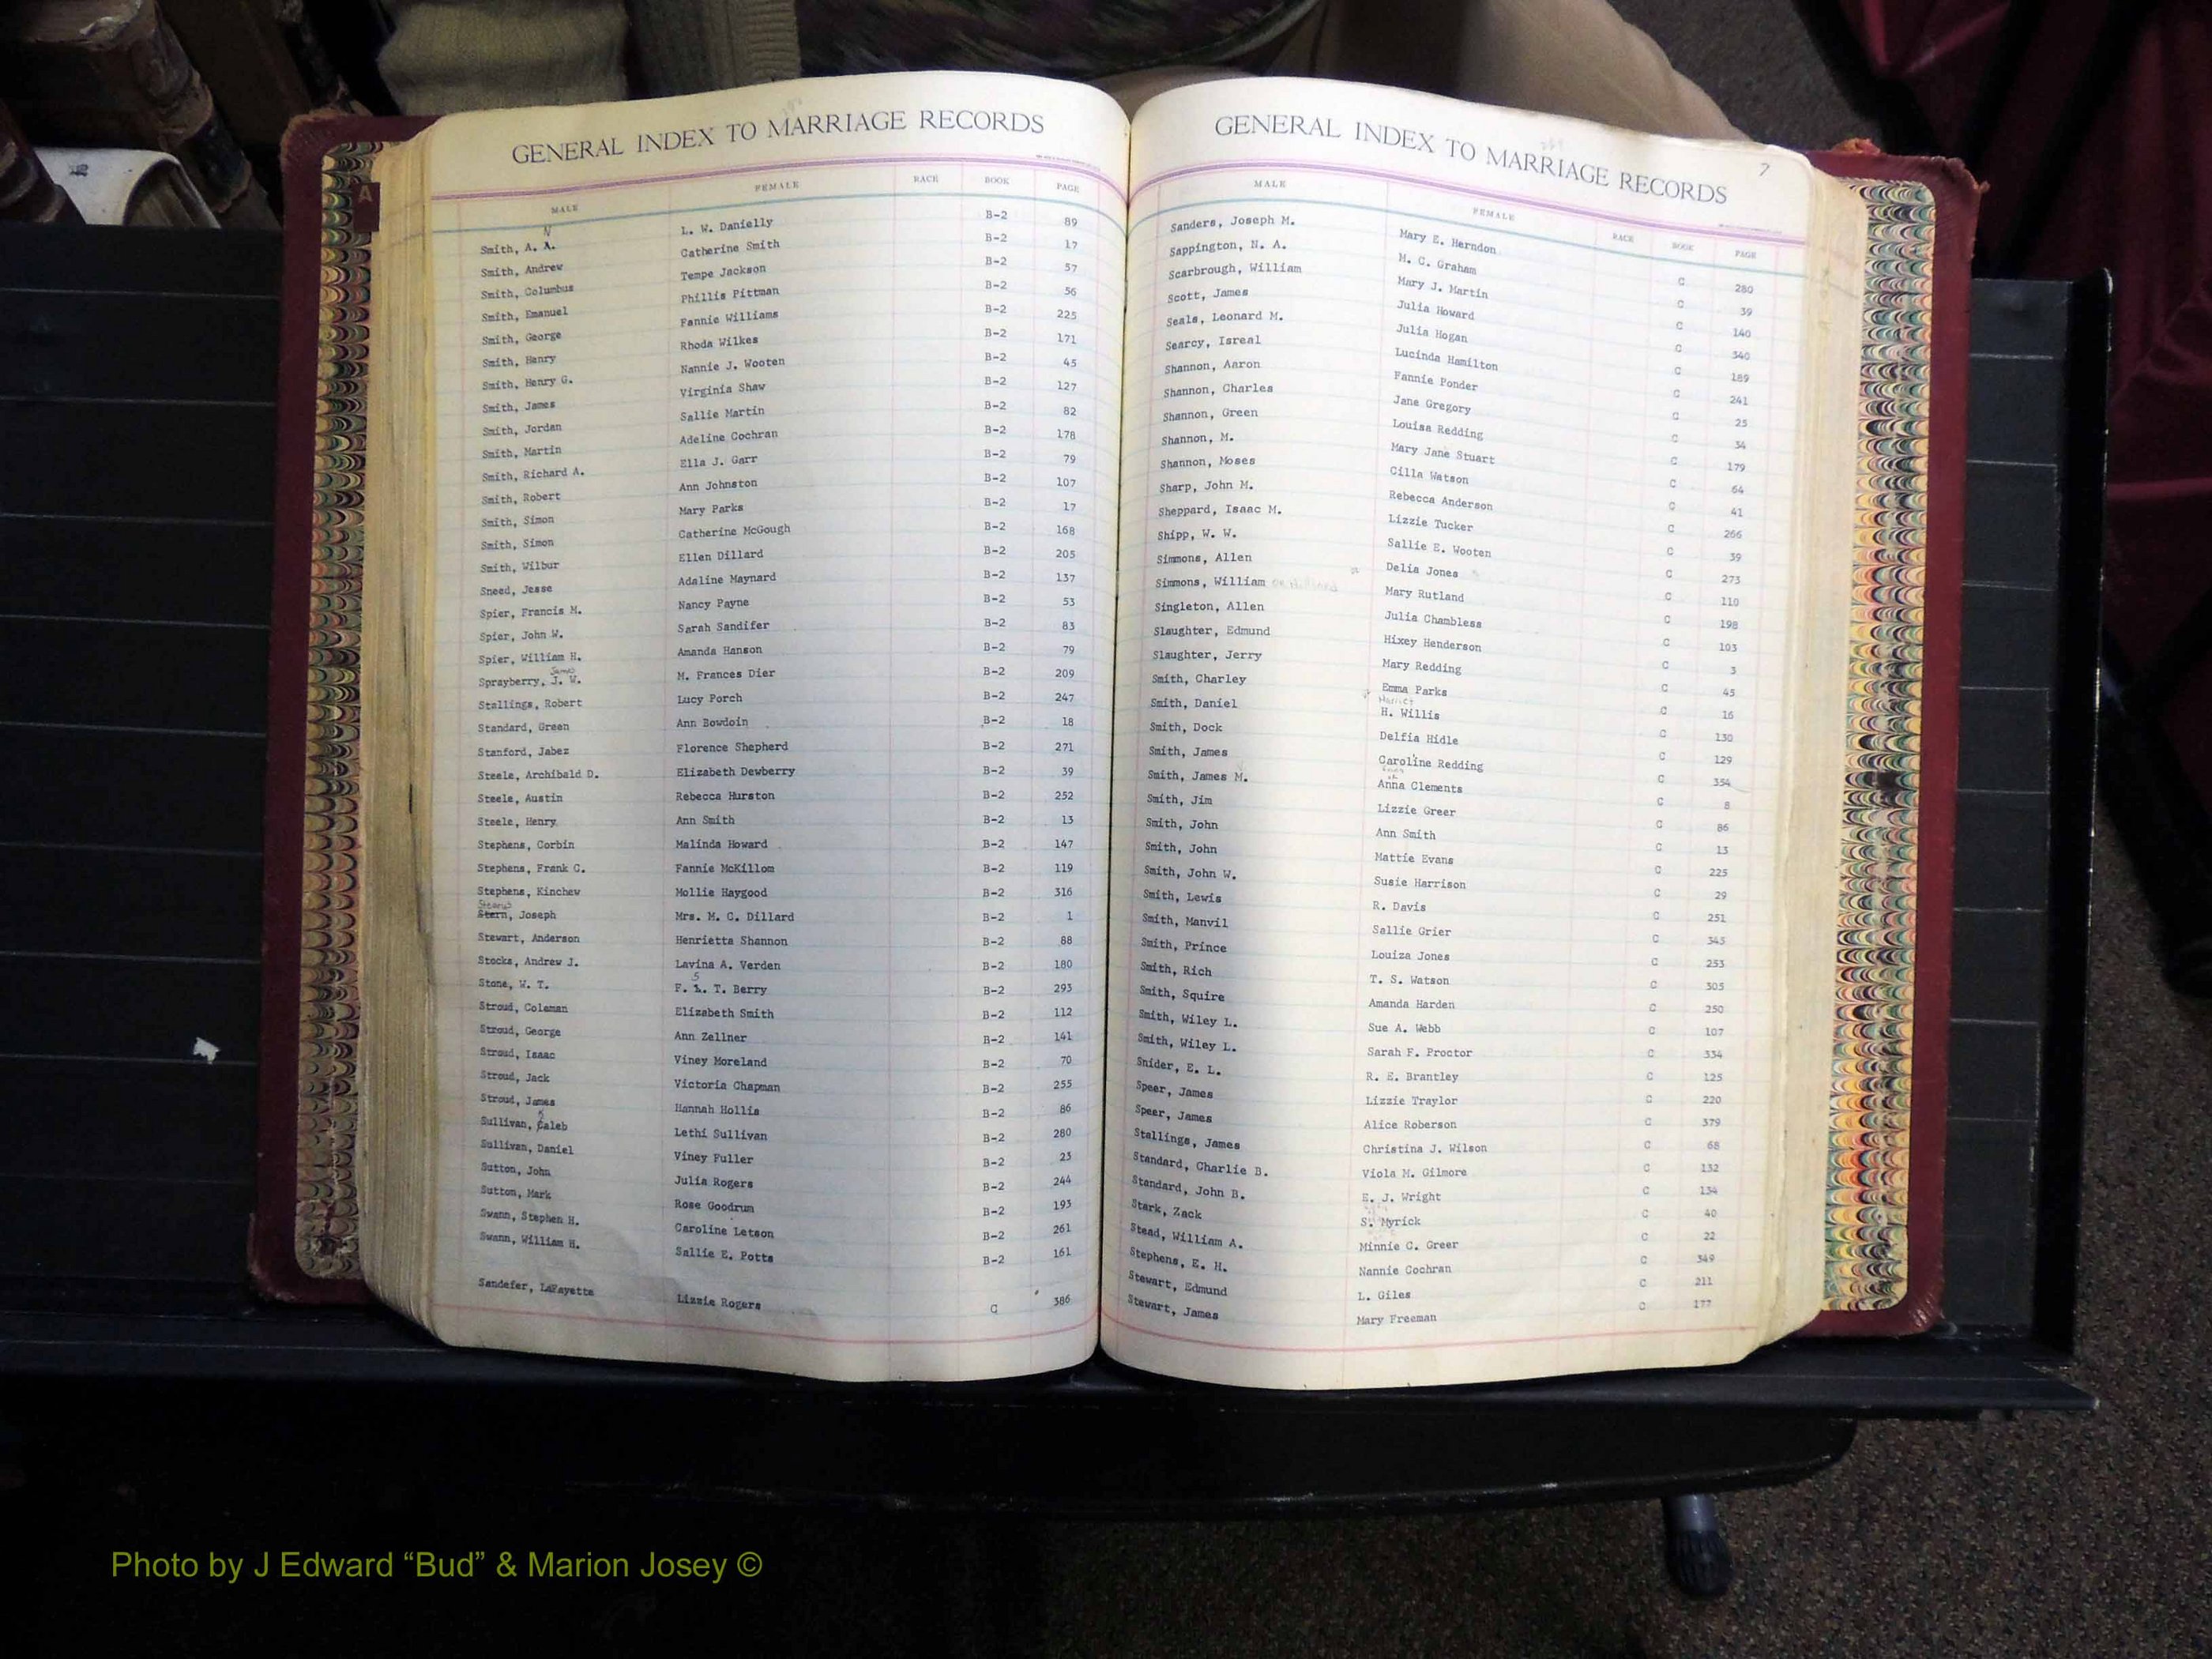 GENERAL INDEX TO MARRIAGE RECORDS
MALE FEMALE RACE BOOK PAGE
N
Smith, A. A. L. W. Danielly B-2 89
Smith, Andrew Catherine Smith B-2 17
Smith, Columbus Tempe Jackson B-2 57
Smith, Emanuel Phillis Pittman B-2 56
Smith, George Fannie Williams B-2 225
Smith, Henry Rhoda Wilkes B-2 171
Smith, Henry G. Nannie J. Wooten B-2 45
Smith, James Virginia Shaw B-2 127
Smith, Jordan Sallie Martin B-2 82
Smith, Martin Adeline Cochran B-2 178
Smith, Richard A. Ella J. Garr B-2 79
Smith, Robert Ann Johnston B-2 107
Smith, Simon Mary Parks B-2 17
Smith, Simon Catherine McGough B-2 168
Smith, Wilbur Ellen Dillard B-2 205
Sneed, Jesse Adaline Maynard B-2 137
Spier, Francis M. Nancy Payne B-2 53
Spier, John W. Sarah Sandifer B-2 83
Spier, William H. Amanda Hanson B-2 79
James
Sprayberry, J. W. M. Frances Dier B-2 209
Stallings, Robert Lucy Porch B-2 247
Standard, Green Ann Bowdoin B-2 18
Stanford, Jabez Florence Shepherd B-2 271
Steele, Archibald D. Elizabeth Dewberry B-2 39
Steele, Austin Rebecca Hurston B-2 252
Steele, Henry Ann Smith B-2 13
Stephens, Corbin Malinda Howard B-2 147
Stephens, Frank C. Fannie McKillom B-2 119
Stephens, Kinchew Mollie Haygood B-2 316
Stearns
Stern, Joseph Mrs. M. C. Dillard B-2 1
Stewart, Anderson Henrietta Shannon B-2 88
Stocks, Andrew J. Lavina A. Verden B-2 180
S
Stone, W. T. F. L. T. Berry B-2 293
Stroud, Coleman Elizabeth Smith B-2 112
Stroud, George Ann Zellner B-2 141
Stroud, Isaac Viney Moreland B-2 70
Stroud, Jack Victoria Chapman B-2 255
Stroud, James Hannah Hollis B-2 86
Sullivan, Caleb Lethi Sullivan B-2 280
Sullivan, Daniel Viney Fuller B-2 23
Sutton, John Julia Rogers B-2 244
Sutton, Mark Rose Goodrum B-2 193
Swann, Stephen H. Caroline Letson B-2 261
Swann, William H. Sallie E. Potts B-2 161
Sandefer, LaFayette Lizzie Rogers C 386
7
GENERAL INDEX TO MARRIAGE RECORDS
MALE FEMALE RACE BOOK PAGE
Sanders, Joseph M. Mary E. Herndon C 280
Sappington, N. A. M. C. Graham C 39
Scarbrough, William Mary J. Martin C 140
Scott, James Julia Howard C 340
Seals, Leonard M. Julia Hogan C 189
Searcy, Isreal Lucinda Hamilton C 241
Shannon, Aaron Fannie Ponder C 25
Shannon, Charles Jane Gregory C 34
Shannon, Green Louisa Redding C 179
Shannon, M. Mary Jane Stuart C 64
Shannon, Moses Cilla Watson C 41
Sharp, John M. Rebecca Anderson C 266
Sheppard, Isaac M. Lizzie Tucker C 39
Shipp, W. W. Sallie E. Wooten C 273
Simmons, Allen Delia Jones C 110
Simmons, William Mary Rutland C 198
Singleton, Allen Julia Chambless C 103
Slaughter, Edmund Hixey Henderson C 3
Slaughter, Jerry Mary Redding C 45
Smith, Charley Emma Parks C 16
Harriet
Smith, Daniel H. Willis C 130
Smith, Dock Delfia Hidle C 129
Smith, James Caroline Redding C 354
Smith, James M. Anna Clements C 8
Smith, Jim Lizzie Greer C 86
Smith, John Ann Smith C 13
Smith, John Mattie Evans C 225
Smith, John W. Susie Harrison C 29
Smith, Lewis R. Davis C 251
Smith, Manvil Sallie Grier C 343
Smith, Prince Louiza Jones C 253
Smith, Rich T. S. Watson C 305
Smith, Squire Amanda Harden C 250
Smith, Wiley L. Sue A. Webb C 107
Smith, Wiley L. Sarah F. Proctor C 334
Snider, E. L. R. E. Brantley C 125
Speer, James Lizzie Traylor C 220
Speer, James Alice Roberson C 379
Stallings, James Christina J. Wilson C 68
Standard, Charlie B. Viola M. Gilmore C 132
Standard, John B. E. J. Wright C 134
Stark, Zack S. Myrick C 40
Stead, William A. Minnie C. Greer C 22
Stephens, E. H. Nannie Cochran C 349
Stewart, Edmund L. Giles C 211
Stewart, James Mary Freeman C 177
A
Photo by J Edward “Bud” & Marion Josey ©